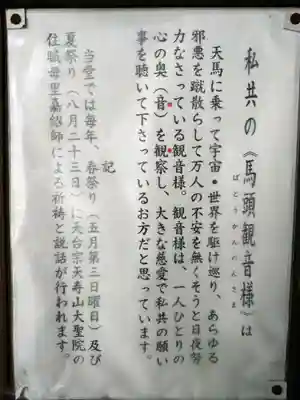 私共の《馬頭観音様》は
ばとうかんのんさま
天馬に乗って宇宙・世界を駆け巡り、あらゆる
邪悪を蹴散らして万人の不安を無くそうと日夜努
力なさっている観音様。観音様は、一人ひとりの
心の奥（音）を観察し、大きな慈愛で私共の願い
事を聴いて下さっているお方だと思っています。
記
当堂では毎年、春祭り（五月第三日曜日）及び
夏祭り（八月二十三日）に天台宗天寿山大聖院の
住職母里嘉紹師による祈祷と説話が行われます。